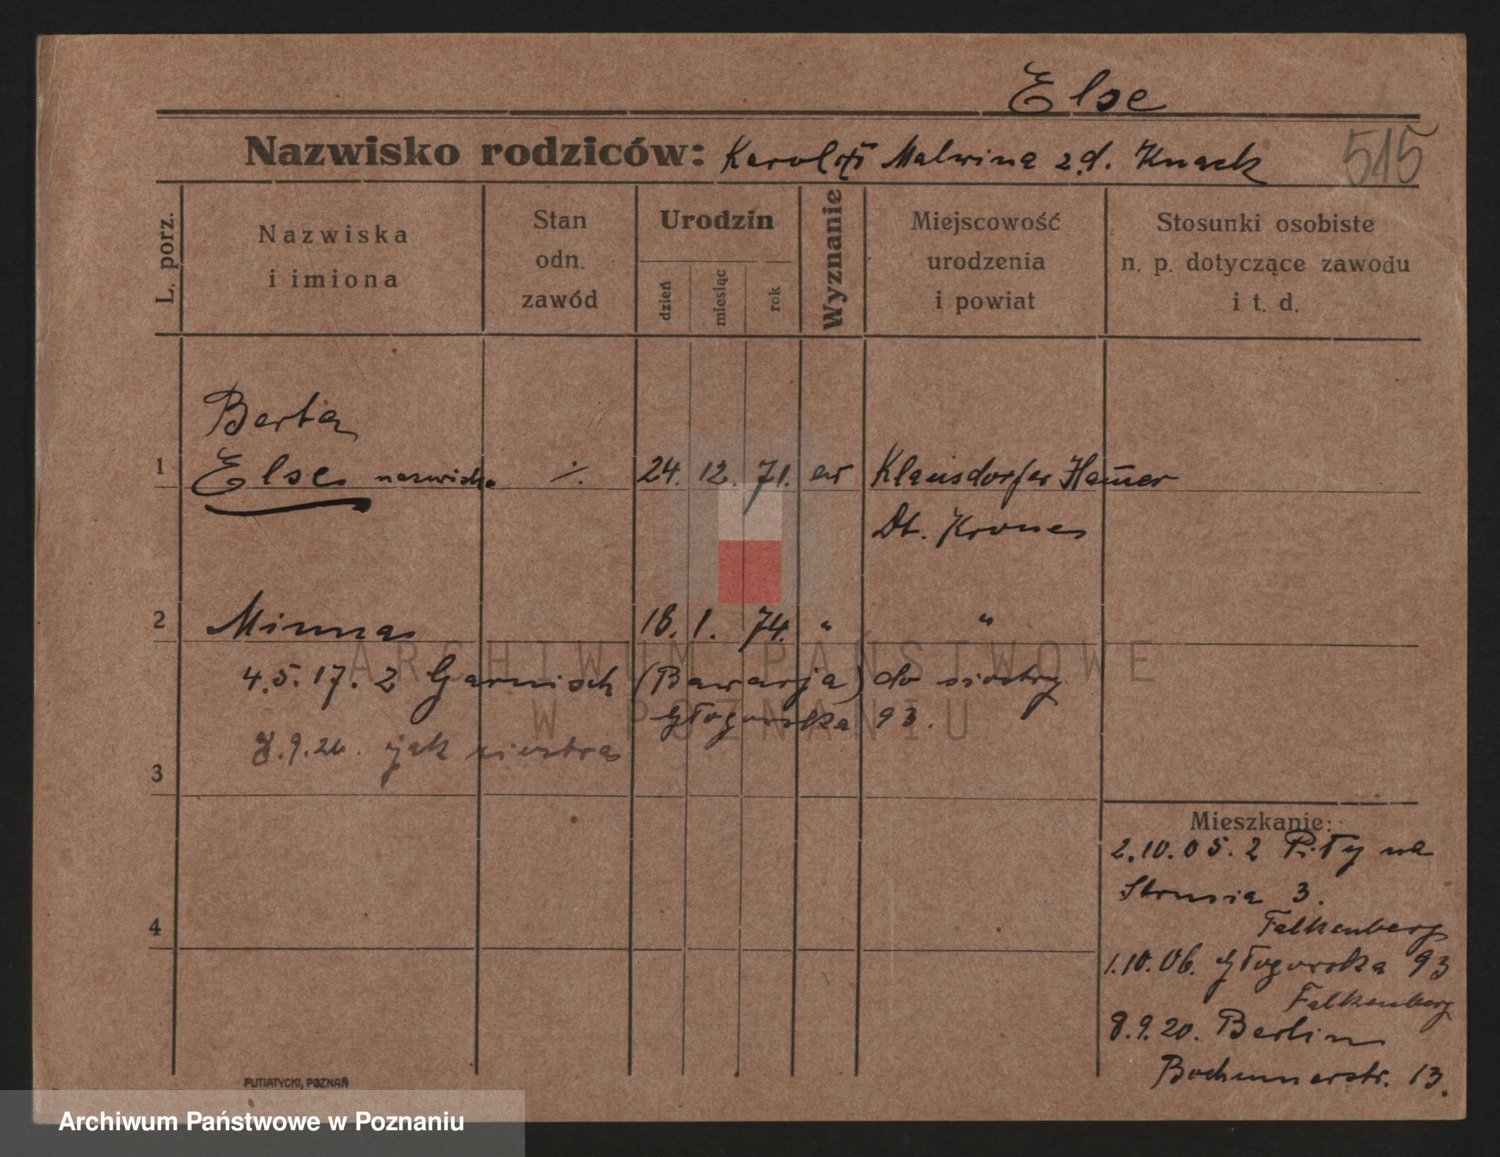 Else
Nazwisko rodziców: Karol i Malwina z d. Knack
515
L. porz.
Nazwiska i imiona
Stan odn. zawód
Urodzin
dzień
miesiąc
rok
Wyznanie
Miejscowość urodzenia i powiat
Stosunki osobiste n. p. dotyczące zawodu i t. d.
Berta
1 Else nazwisko ·/. 24. 12. 71. ew Klausdorfer Hammer
Dt. Krone
2 Minna 18. 1. 74. " "
4.5.17. z Garmisch (Bawarja) do siostry
Głogowska 93.
8.9.20. jak siostra
3
4
Mieszkanie:
2.10.05. z Piły na
Strusia 3.
Falkenberg
1.10.06. Głogowska 93
Falkenberg
8.9.20. Berlin
Bochumerstr. 13.
PUTIATYCKI, POZNAŃ
ARCHIWUM PAŃSTWOWE
W POZNANIU
Archiwum Państwowe w Poznaniu